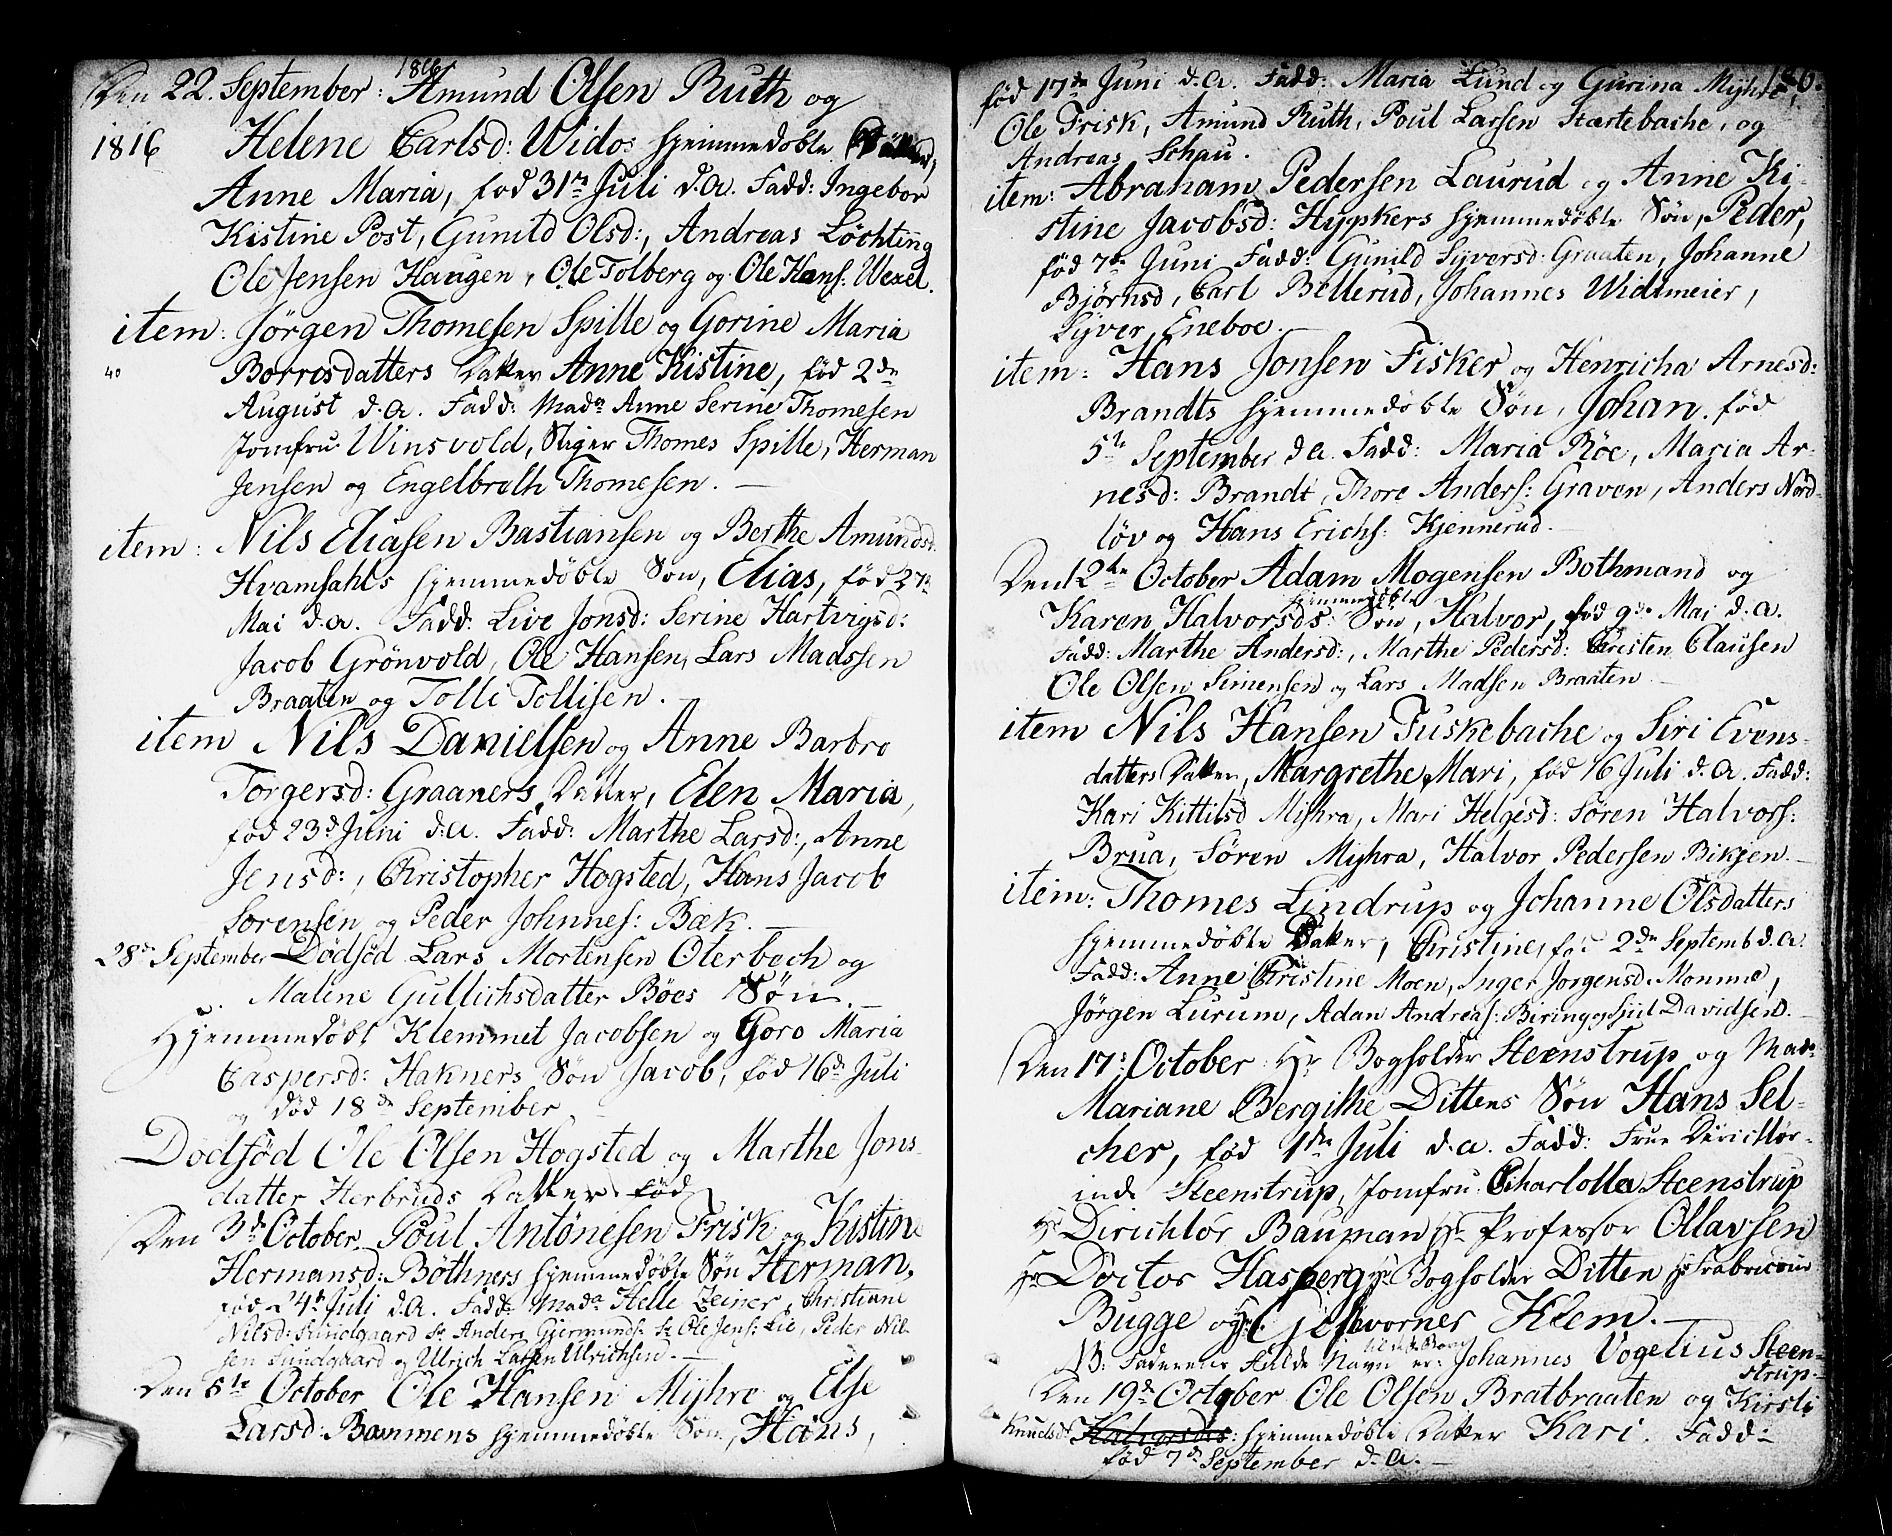 1816
Den 22. September: Amund Olsen Ruth og
1816 Helene Carlsd: Widos hjemmedøbte
Anne Maria, fød 31te Juli d.A. Fadd: Ingebor
Kistine Post, Gunild Olsd:, Andreas Løchting
Ole Jensen Haugen, Ole Tolberg og Ole Hans: Wexel.
item: Jørgen Thomesen Spille og Gorine Maria
40 Borresdatters Datter Anne Kistine, fød 2de
August d.A. Fadd: Mada Anne Serine Thomesen
Jomfru Winsvold, Stiger Thomes Spille, Herman
Jensen og Engelbreth Thomesen.
item: Nils Eliasen Bastiansen og Berthe Amundsd:
Hvamsahls hjemmedøbte Søn, Elias, fød 27de
Mai d.A. Fadd: Live Jonsd: Serine Hartvigsd:
Jacob Grönvold, Ole Hansen, Lars Madssen
Braaten og Tolle Tollisen.
item Nils Danielsen og Anne Barbro
Torgersd: Graaners Datter, Elen Maria,
fød 23de Juni d.A. Fadd: Marthe Larsd:, Anne
Jensd:, Christopher Hogsted, Hans Jacob
Sorensen og Peder Johnnes: Bæk.
28de September Dødfød Lars Mortensen Oterbech og
Maline Gullichsdatter Böes Søn.
Hjemmedøbt Klemmet Jacobsen og Goro Maria
Caspersd: Hakners Søn Jacob, fød 16de Juli
og død 18de September
Dødfød Ole Olsen Hogsted og Marthe Jons-
datter Herbruds Datter fød
Den 3de October Poul Antönesen Frisk og Kistine
Hermansd: Böthners hjemmedøbte Søn Herman,
fød 24de Juli d.A. Fadd: Mada Helle Zeiner, Christiane
Nilsd: Sundgaard Sr Anders Gjermunds: Sr Ole Jens: Lie, Peder Nil-
sen Sundgaard og Ulrich Larsen Ulrichsen.
Den 5te October Ole Hansen Myhre og Else
Larsd: Bammens hjemmedøbte Søn, Hans,
fød 17de Juni d.A. Fadd: Maria Lund og Gurina Myhre,
Ole Frisk, Amund Ruth, Poul Larsen Stærtebache, og
Andreas Schau.
item: Abraham Pedersen Laurud og Anne Ki-
stine Jacobsd: Hypkers hjemmedøbte Søn, Peder,
fød 7de Juni Fadd: Gunild Syversd: Graaten, Johanne
Bjørnsd, Carl Bellerud, Johannes Widtmeier,
Syver Eneboe.
item: Hans Jonsen Fisker og Henricha Arnesd:
Brandts hjemmedøbte Søn, Johan, fød
5te September d.A. Fadd: Maria Röe, Maria Ar-
nesd: Brandt, Thore Anders: Graven, Anders Nord-
löv og Hans Erichs: Kjennerud.
Den 12te October Adam Mogensen Bothmand og
Karen Halvorsds: hjemmedøbte Søn, Halvor, fød 9de Mai d.A.
Fadd: Marthe Andersd:, Marthe Pedersd: Christen Clausen
Ole Olsen Simensen og Lars Madsen Braaten
item Nils Hansen Fuskebache og Siri Evens-
datters Datter, Margrethe Mari, fød 16 Juli d.A. Fadd:
Kari Kittilsd Myhra, Mari Helgesd: Søren Halvors:
Brua, Søren Myhra, Halvor Pedersen Bikjen.
item: Thomes Lindrup og Johanne Olsdatters
hjemmedøbte Datter, Christine, fød 2de Septemb d.A.
Fadd: Anne Christine Moen, Inger Jorgensd. Momme,
Jørgen Lurum, Adan Andreas: Biring og Sjul Davidsen.
Den 17: October Hr Bogholder Steenstrup og Mada
Mariane Bergithe Dittens Søn Hans Sel-
cher, fød 1de Juli d.A. Fadd: Frue Dirichtør-
inde Steenstrup, Jomfru Charlotta Steenstrup
Hr Dirichtør Bauman Hr Professor Ollavsen
Hr Doctor Hasberg Hr Bogholder Ditten Hr Fabriceur
Bugge og Hr Geshworner Klem.
NB. Faderens fulde Navn er: Johannes Vogelius Steen-
strup.
Den 19de October Ole Olsen Bratbraaten og Kirsti
Knudsds Halvorsdts: hjemmedøbte Datter Kari. Fadd:
fød 7de September d.A.